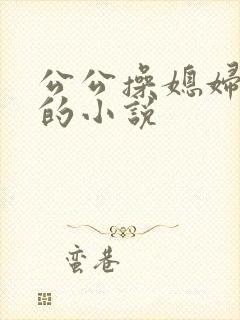 公公操媳婦
的小說
蛮巷